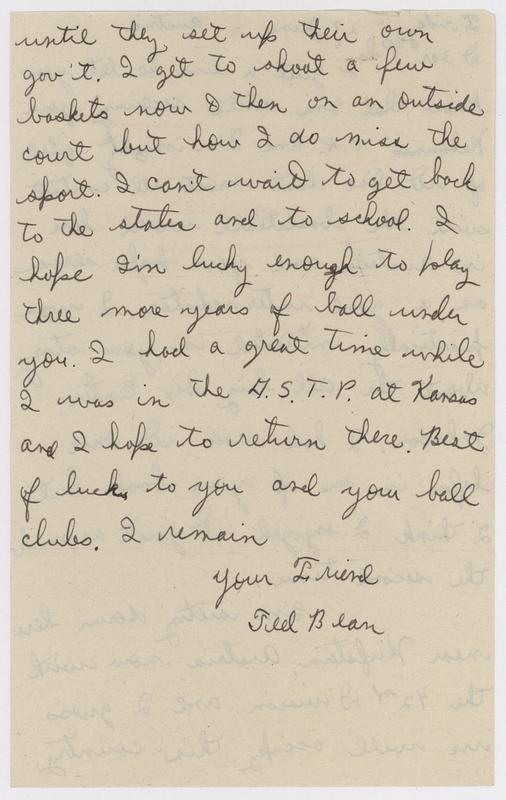 until they set up their own
gov't. I get to shoot a few
baskets now & then on an outside
court but how I do miss the
sport. I can't waid to get back
to the states and to school. I
hope I'm lucky enough to play
three more years of ball under
you. I had a great time while
I was in the A.S.T.P. at Kansas
and I hope to return there. Best
of luck to you and your ball
clubs. I remain
Your Friend
Ted Bean